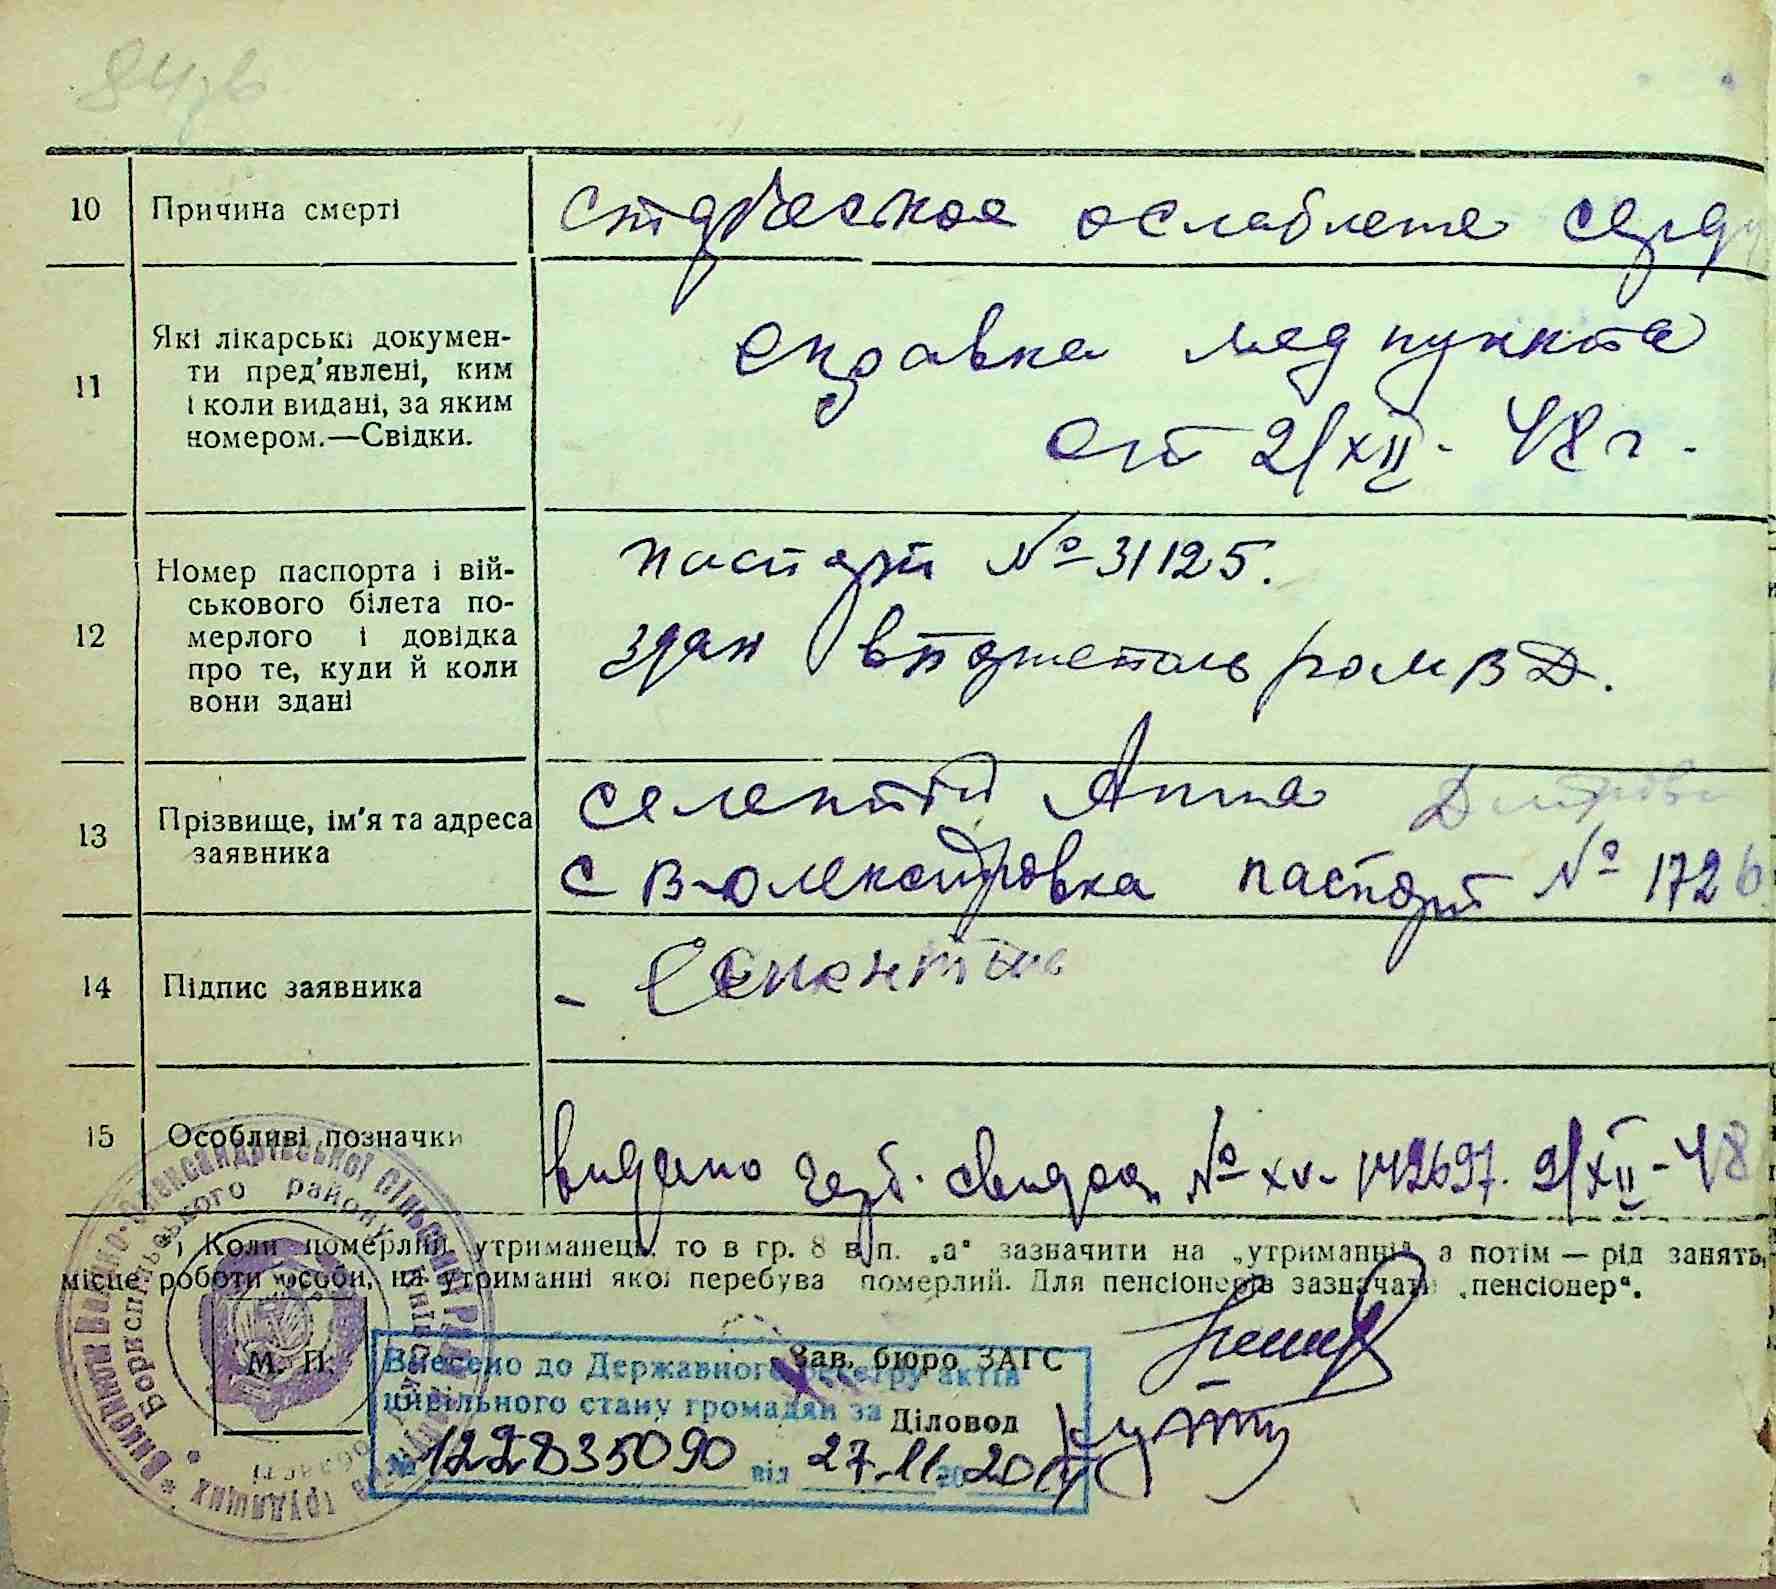 10 Причина смерті старческое ослабление серд
11 Які лікарські докумен-
ти пред'явлені, ким
і коли видані, за яким
номером.—Свідки.
справка медпункта
от 2/XII - 48 г.
12 Номер паспорта і вій-
ськового білета по-
мерлого і довідка
про те, куди й коли
вони здані
паспорт № 31125.
здан
13 Прізвище, ім'я та адреса
заявника
Анна
с В-Олександровка паспорт № 1726
14 Підпис заявника
15 Особливі позначки
видано герб. свидоц. № XV- 142697. 2/XII - 48
Коли померлий утриманець, то в гр. 8 в п. „а“ зазначити на „утриманні“, а потім — рід занять,
місце роботи особи, на утриманні якої перебува померлий. Для пенсіонерів зазначати „пенсіонер“.
М. П.
Зав. бюро ЗАГС
Діловод
Внесено до Державного реєстру актів
цивільного стану громадян за
№ 122835090 від 27.11.2014
Бориспільського району